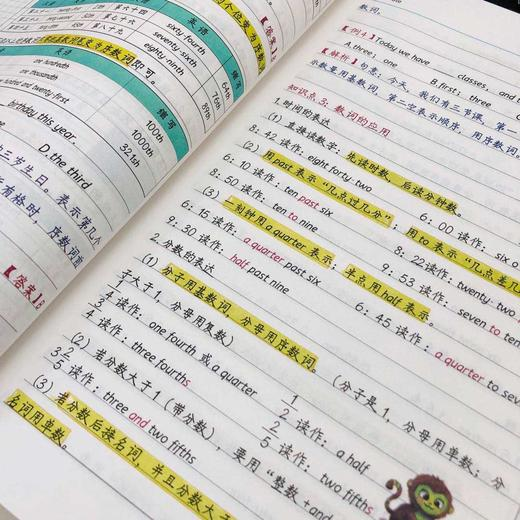 英语
缩写
第六十四
sixty fourth
64th
第七十六
seventy sixth
76th
第八十九
eighty ninth
89th
数词即可。
英语
缩写
one hundredth
100th
one thousandth
1000th
321st
birthday this year.
D. the third
三岁生日。表示第几个
有格时，序数词前
【答案】B
数词。
【例1】Today we have ___ classes, and
A.three; one
B.first; three
【解析】句意：今天，我们有三节课，第一
示数量用基数词，第二空表示顺序，用序数词。
知识点3：数词的应用
1.时间的表达
(1) 直接读数字：先读时数，后读分钟数。
8：42 读作：eight forty-two
6：00 读作：six o
(2) 用past表示“几点过几分”；用to表示“几点差几
6：10 读作：ten past six
8：22读作：twenty-two
8：50 读作：ten to nine
(3) 一刻钟用a quarter表示；半点用half表示。
6：15 读作：a quarter past six
8：53 读作：seven to
9：30 读作：half past nine
6：45 读作：a quarter to se
2.分数的表达
(1) 分子用基数词，分母用序数词。（分子是1，分母用单数；分
子大于1，分母用复数）
1/4 读作：one fourth 或 a quarter
1/2 读作：a half
3/4 读作：three fourths
2/5 读作：two fifths
(2) 若分数大于1（带分数），要用“整数+and
3 2/5 读作：three and two fifths
(3) 若分数后接名词，并且分数大于
名词用单数。